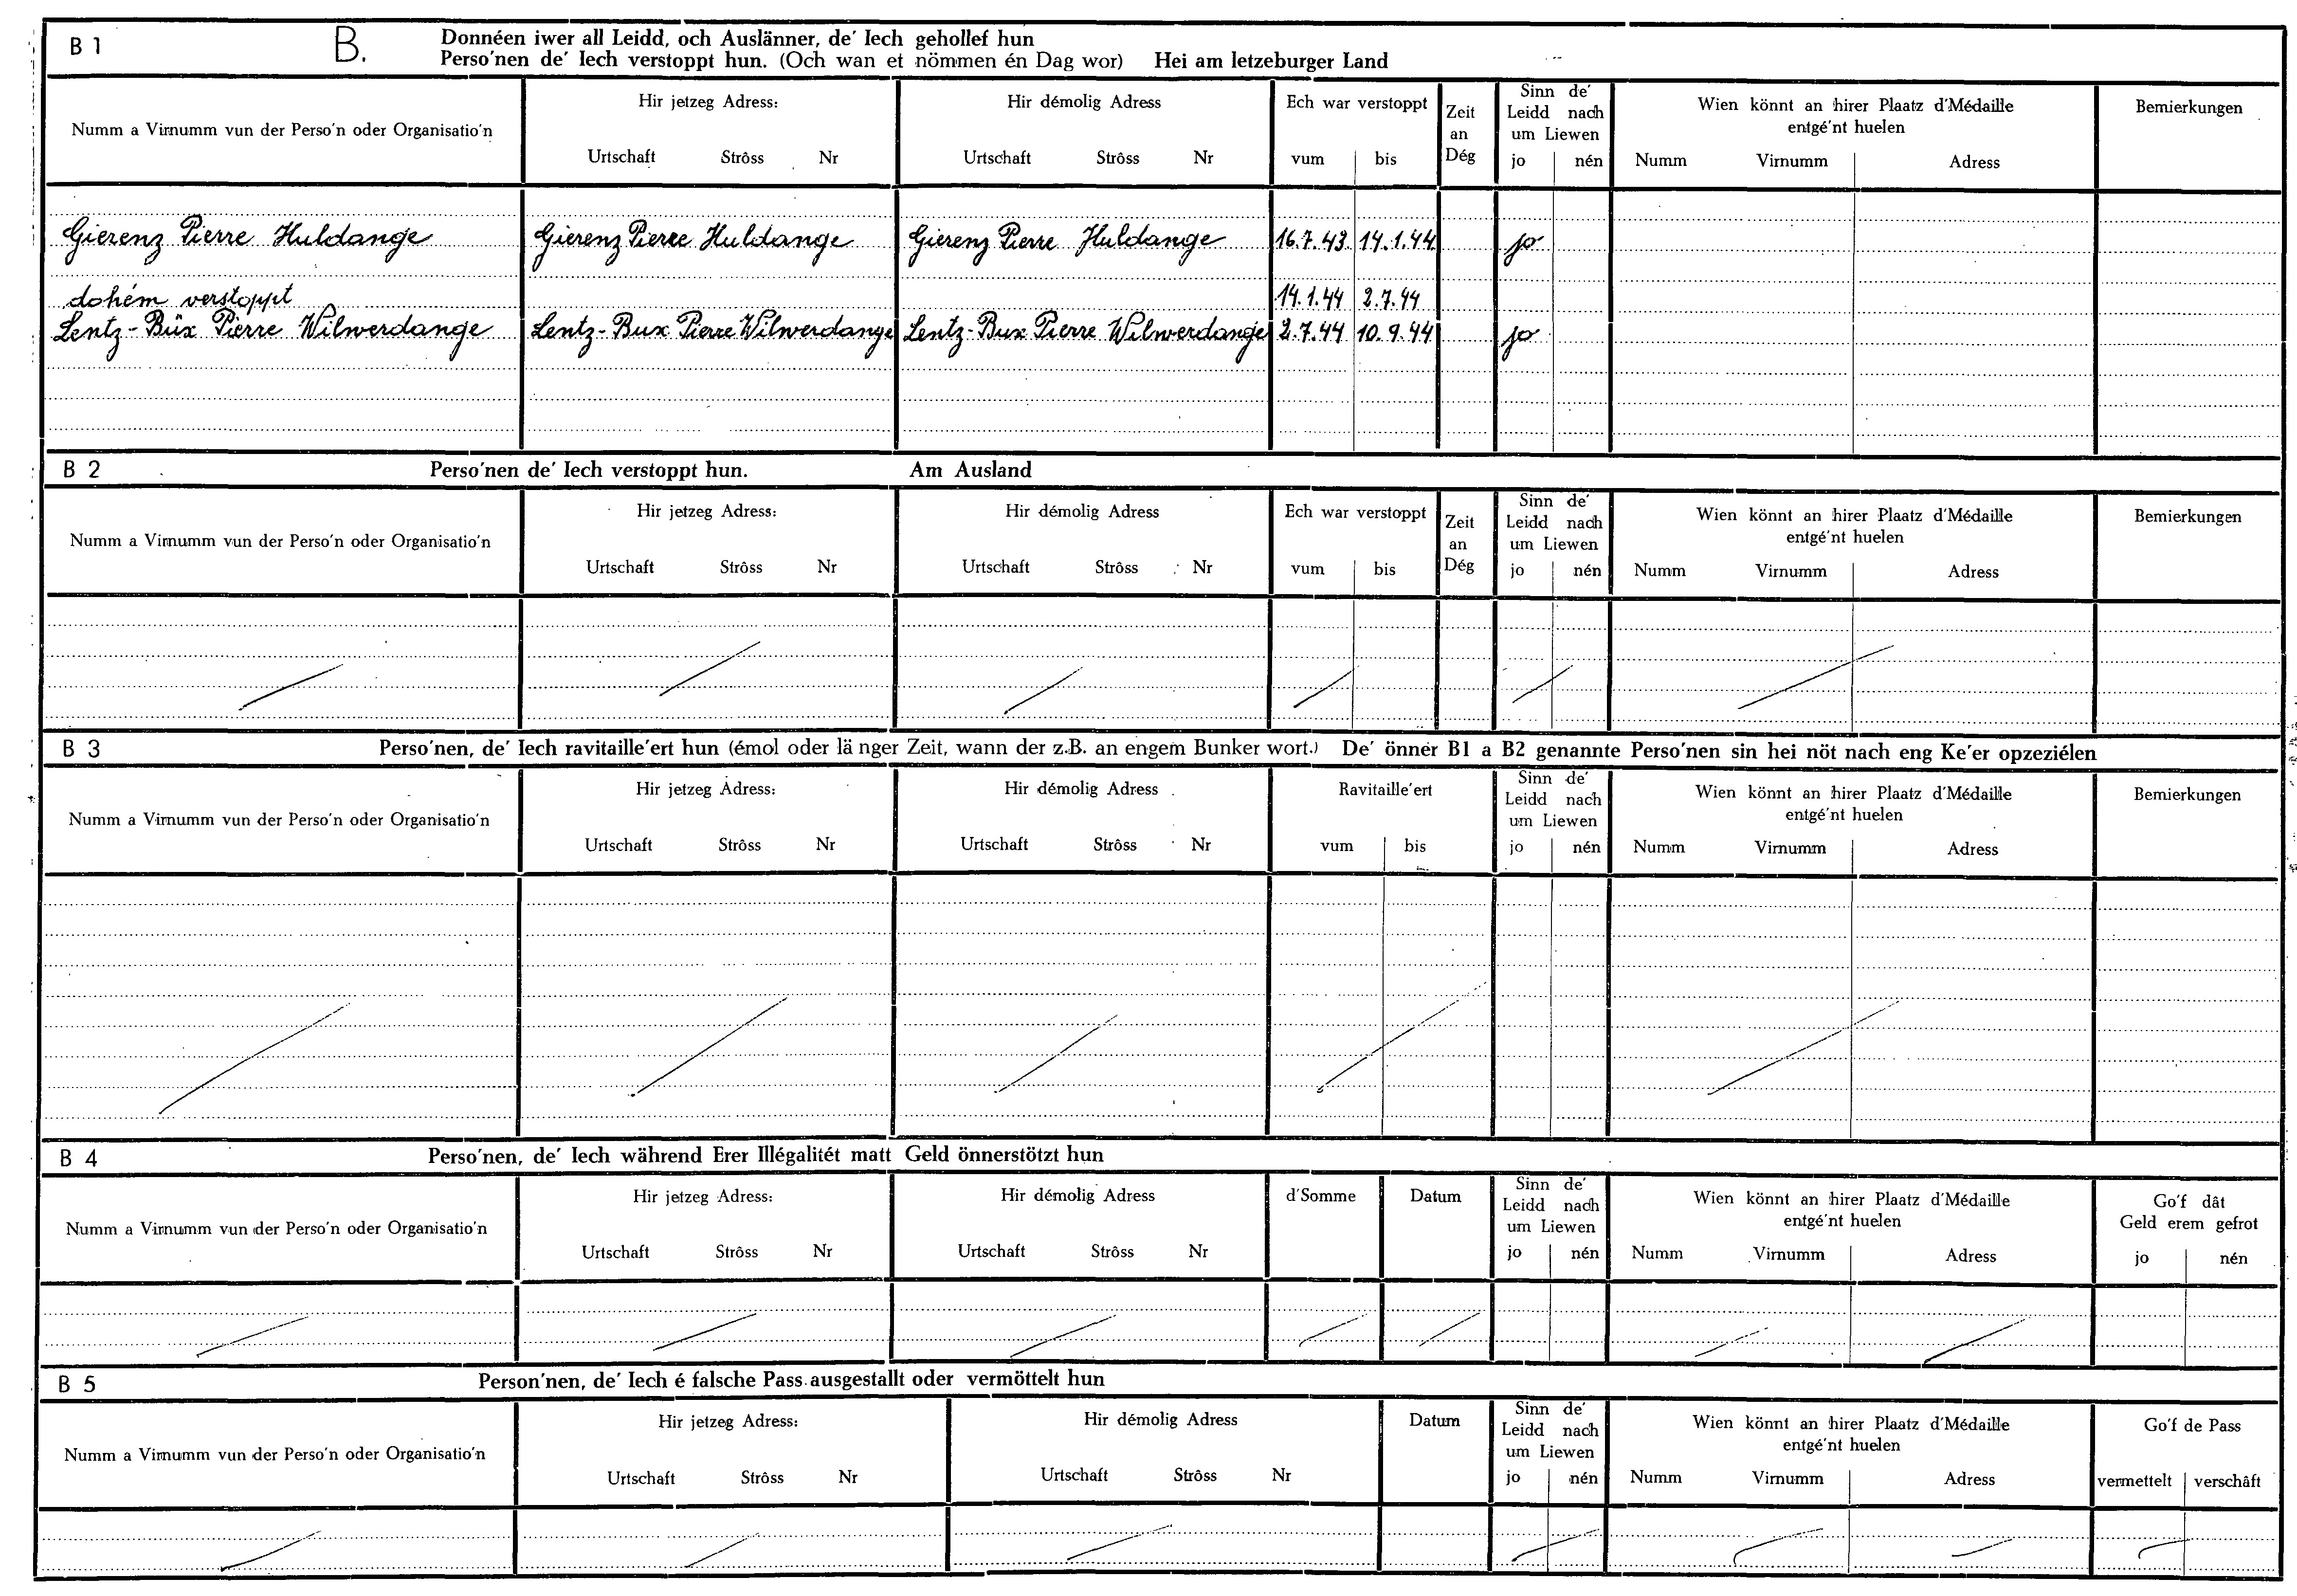 B 1 B. Donnéen iwer all Leidd, och Auslänner, de' Iech gehollef hun
Perso'nen de' Iech verstoppt hun. (Och wan et nömmen én Dag wor) Hei am letzeburger Land
Numm a Virnumm vun der Perso'n oder Organisatio'n
Hir jetzeg Adress:
Urtschaft Strôss Nr
Hir démolig Adress
Urtschaft Strôss Nr
Ech war verstoppt
vum bis
Zeit
an
Dég
Sinn de'
Leidd nach
um Liewen
jo nén
Wien könnt an hirer Plaatz d'Médaille
entgé'nt huelen
Numm Virnumm Adress
Bemierkungen
Gierenz Pierre Huldange Gierenz Pierre Huldange Gierenz Pierre Huldange 16.7.43 14.1.44 jo
dohém verstoppt 14.1.44 2.7.44
Lentz-Büx Pierre Wilwerdange Lentz-Bux Pierre Wilwerdange Lentz-Bux Pierre Wilwerdange 2.7.44 10.9.44 jo
B 2 Perso'nen de' Iech verstoppt hun. Am Ausland
Numm a Virnumm vun der Perso'n oder Organisatio'n
Hir jetzeg Adress:
Urtschaft Strôss Nr
Hir démolig Adress
Urtschaft Strôss Nr
Ech war verstoppt
vum bis
Zeit
an
Dég
Sinn de'
Leidd nach
um Liewen
jo nén
Wien könnt an hirer Plaatz d'Médaille
entgé'nt huelen
Numm Virnumm Adress
Bemierkungen
B 3 Perso'nen, de' Iech ravitaille'ert hun (émol oder länger Zeit, wann der z.B. an engem Bunker wort.) De' önner B1 a B2 genannte Perso'nen sin hei nöt nach eng Ke'er opzeziélen
Numm a Virnumm vun der Perso'n oder Organisatio'n
Hir jetzeg Adress:
Urtschaft Strôss Nr
Hir démolig Adress
Urtschaft Strôss Nr
Ravitaille'ert
vum bis
Sinn de'
Leidd nach
um Liewen
jo nén
Wien könnt an hirer Plaatz d'Médaille
entgé'nt huelen
Numm Virnumm Adress
Bemierkungen
B 4 Perso'nen, de' Iech während Erer Illégalitét matt Geld önnerstötzt hun
Numm a Virnumm vun der Perso'n oder Organisatio'n
Hir jetzeg Adress:
Urtschaft Strôss Nr
Hir démolig Adress
Urtschaft Strôss Nr
d'Somme
Datum
Sinn de'
Leidd nach
um Liewen
jo nén
Wien könnt an hirer Plaatz d'Médaille
entgé'nt huelen
Numm Virnumm Adress
Go'f dât
Geld erem gefrot
jo nén
B 5 Person'nen, de' Iech é falsche Pass ausgestallt oder vermöttelt hun
Numm a Virnumm vun der Perso'n oder Organisatio'n
Hir jetzeg Adress:
Urtschaft Strôss Nr
Hir démolig Adress
Urtschaft Strôss Nr
Datum
Sinn de'
Leidd nach
um Liewen
jo nén
Wien könnt an hirer Plaatz d'Médaille
entgé'nt huelen
Numm Virnumm Adress
Go'f de Pass
vermettelt verschâft